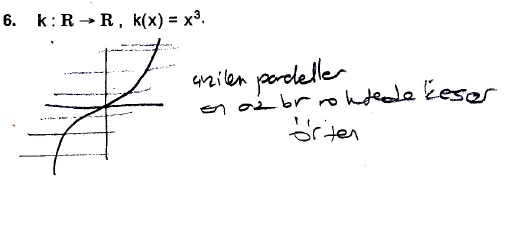 6. k : R → R , k(x) = x³.
çizilen paraleller
en az bir noktada keser
örten